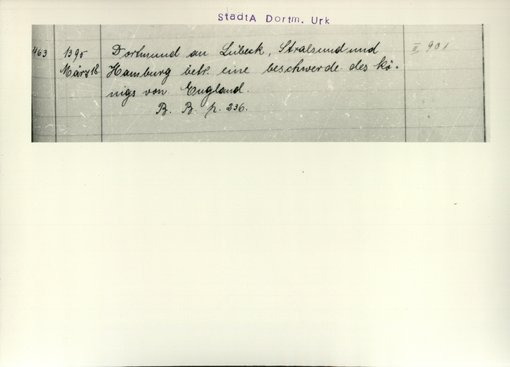 StadtA Dortm. Urk
463 1395 Dortmund an Lübeck, Stralsund und II 901
März 16 Hamburg betr. eine beschwerde des Kö-
nigs von England.
B. B. p. 236.